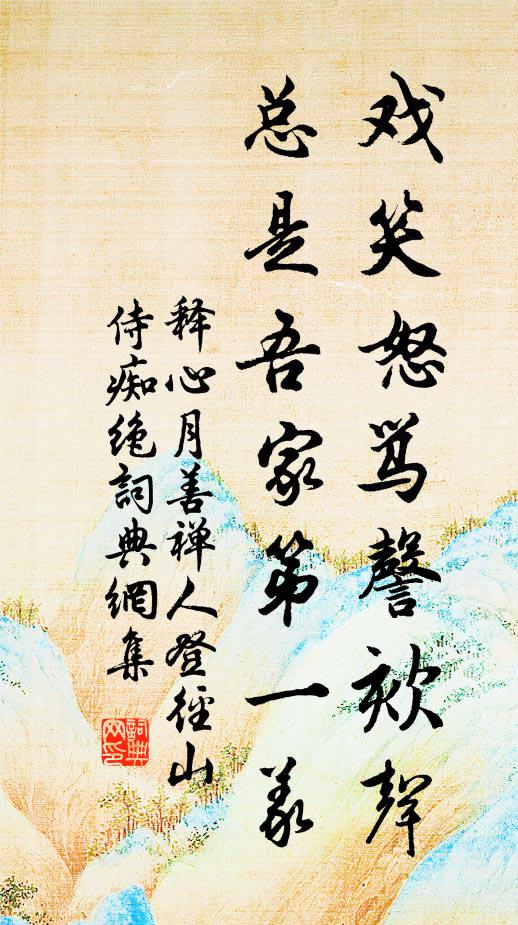 戏笑怒骂謦欬聲
总是吾家第一义
释心月善禅人登径山
侍痴绝詞典網集
詞典
网印